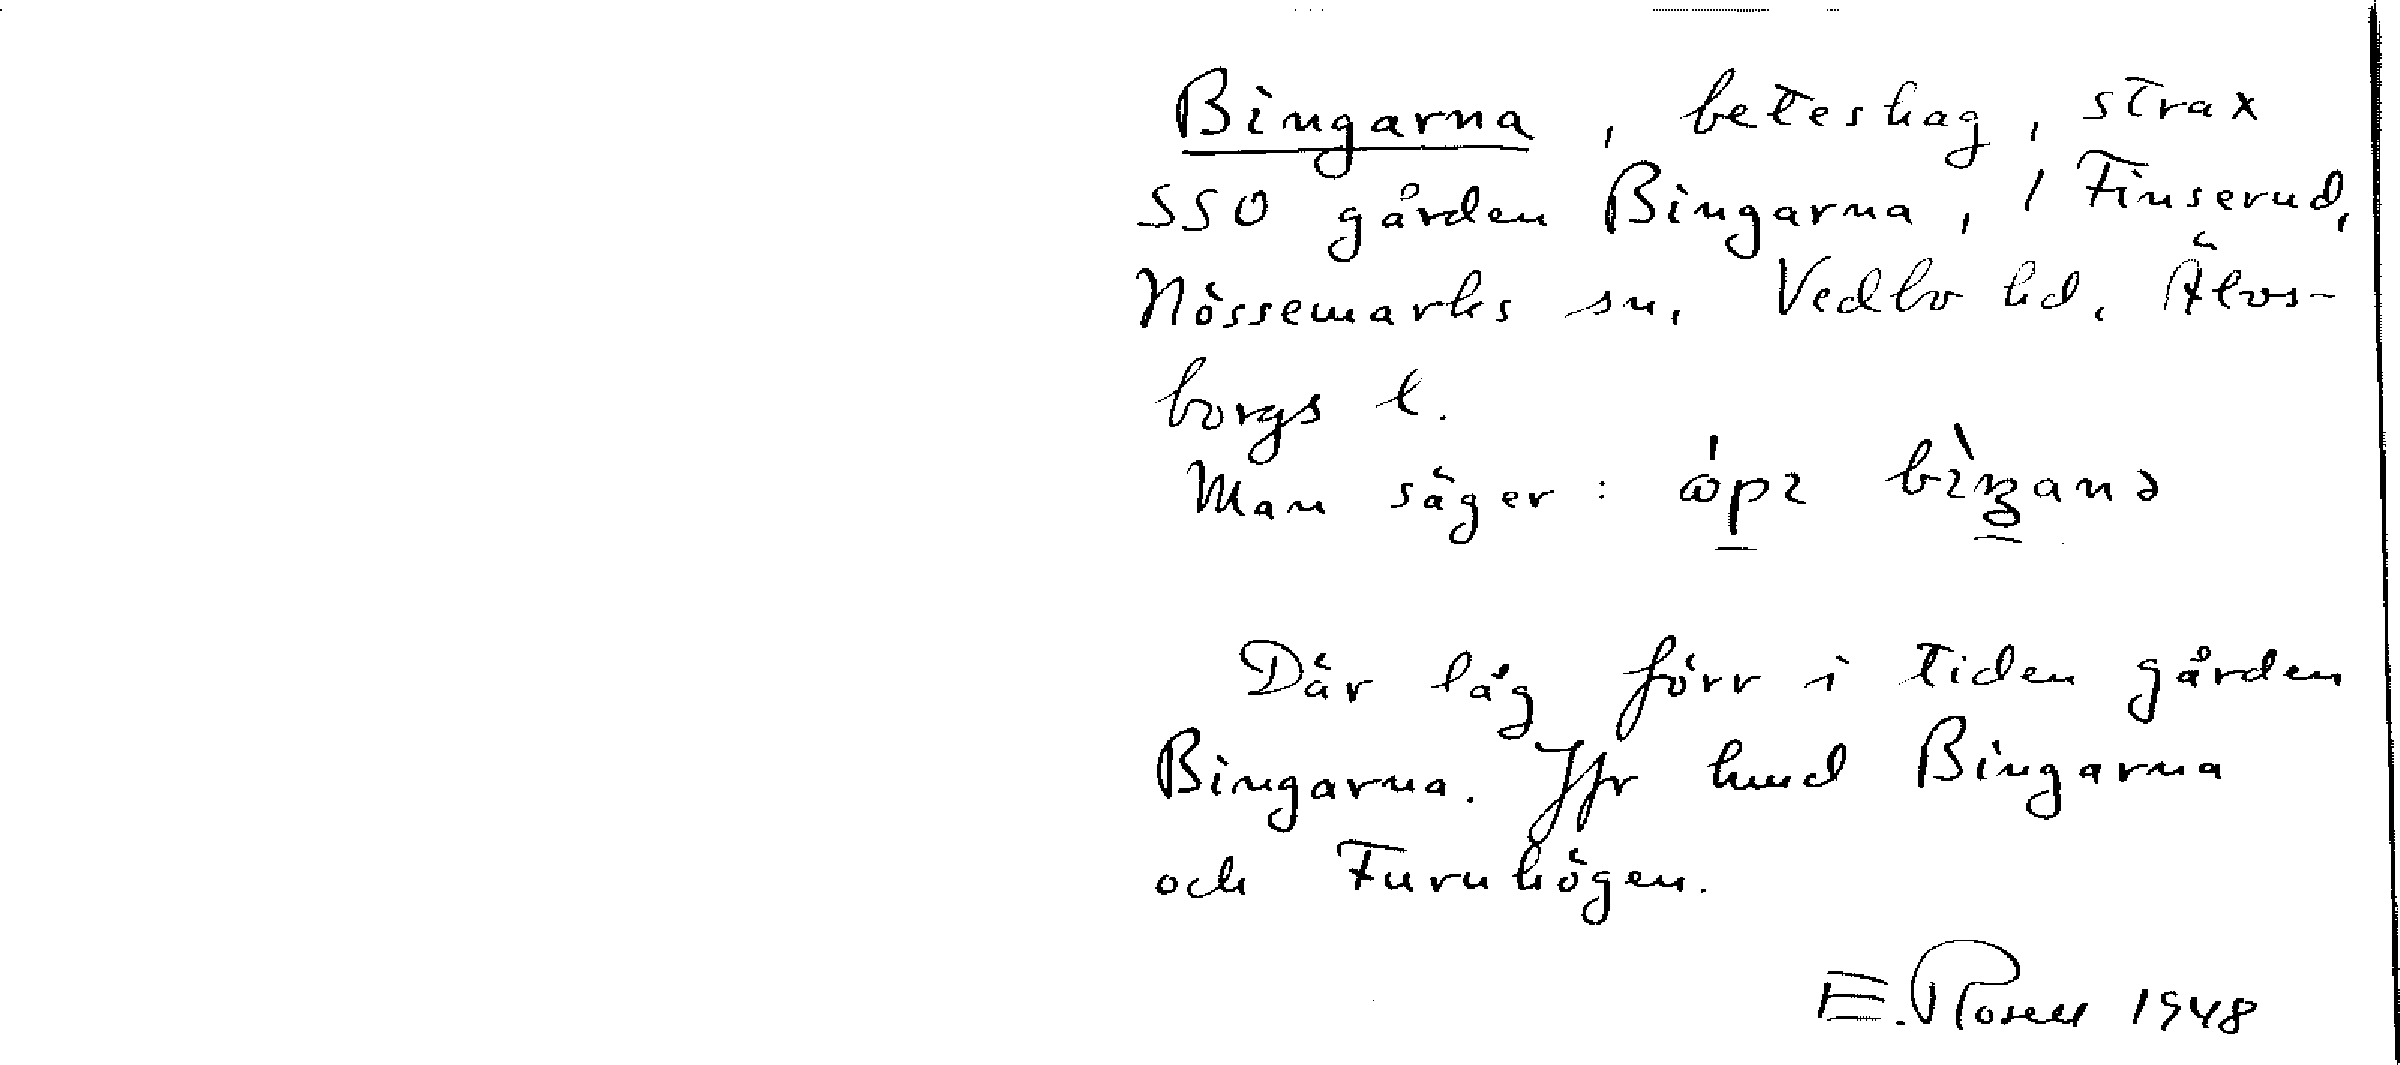 Bingarna, beteshag, strax
SSO gården Bingarna, 1 Finserud,
Nössemarks sn, Vedbo hd, Älvs-
borgs l.
Man säger:
Där låg förr i tiden gården
Bingarna. Jfr hmd Bingarna
och Furuhögen.
E. Rosell 1948